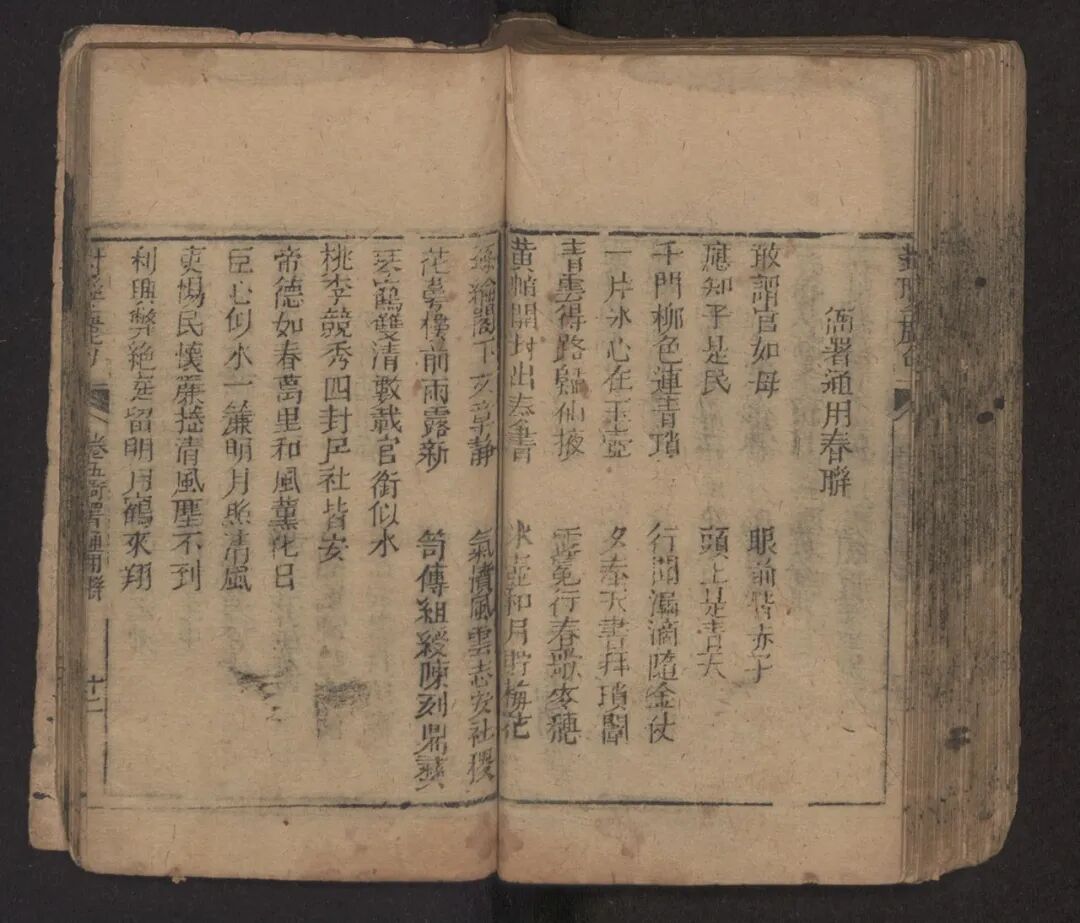 衙署通用春聯
敢謂官如母 眼前皆赤子
應知子是民 頭上是青天
千門柳色連青瑣 行間漏滴隨金仗
一片冰心在玉壺 夕奉天書拜瑣闈
青雲得路歸仙掖 露冕行春歌麥穗
黃帕開封出奏書 冰壺和月貯梅花
絲綸閣下文章靜 氣憤風雲志安社稷
花萼樓前雨露新 笥傳組綬陳刻鼎彝
琴鶴雙清數載官銜似水
桃李競秀四封民社皆安
帝德如春萬里和風薰化日
臣心似水一簾明月照清風
吏惕民懷簾捲清風塵不到
利興弊絕庭留明月鶴來翔
卷五衙署通用聯 十二